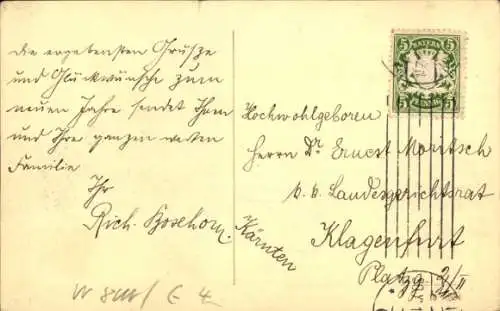 die ergebensten Grüsze
und Glückwünsche zum
neuen Jahre sendet Ihnen
und Ihrer ganzen werten
Familie
Ihr
Rich. Bosehorn.
Hochwohlgeboren
Herrn Dr Ernest Moritsch
k. k. Landesgerichtsrat
Klagenfurt
Kärnten
5 BAYERN 5
5 PFENNIG 5